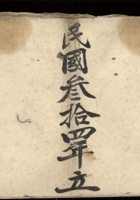 民國叁拾四年立